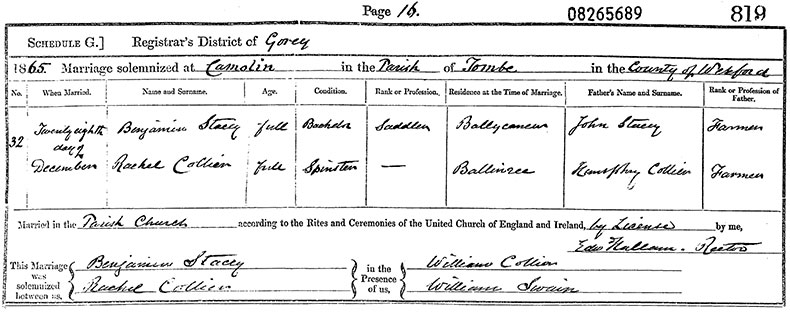 Page 16. 08265689 819
SCHEDULE G.] Registrar's District of Gorey
1865. Marriage solemnized at Camolin in the Parish of Tombe in the County of Wexford
No. When Married. Name and Surname. Age. Condition. Rank or Profession. Residence at the Time of Marriage. Father's Name and Surname. Rank or Profession of Father.
32 Twenty eighth day of December Benjamin Stacey full Bachelor Saddler Ballycanew John Stacey Farmer
Rachel Collier full Spinster — Ballinree Humphry Collier Farmer
Married in the Parish Church according to the Rites and Ceremonies of the United Church of England and Ireland, by License by me,
Rector
This Marriage was solemnized between us, Benjamin Stacey in the Presence of us, William Collier
Rachel Collier William Swain